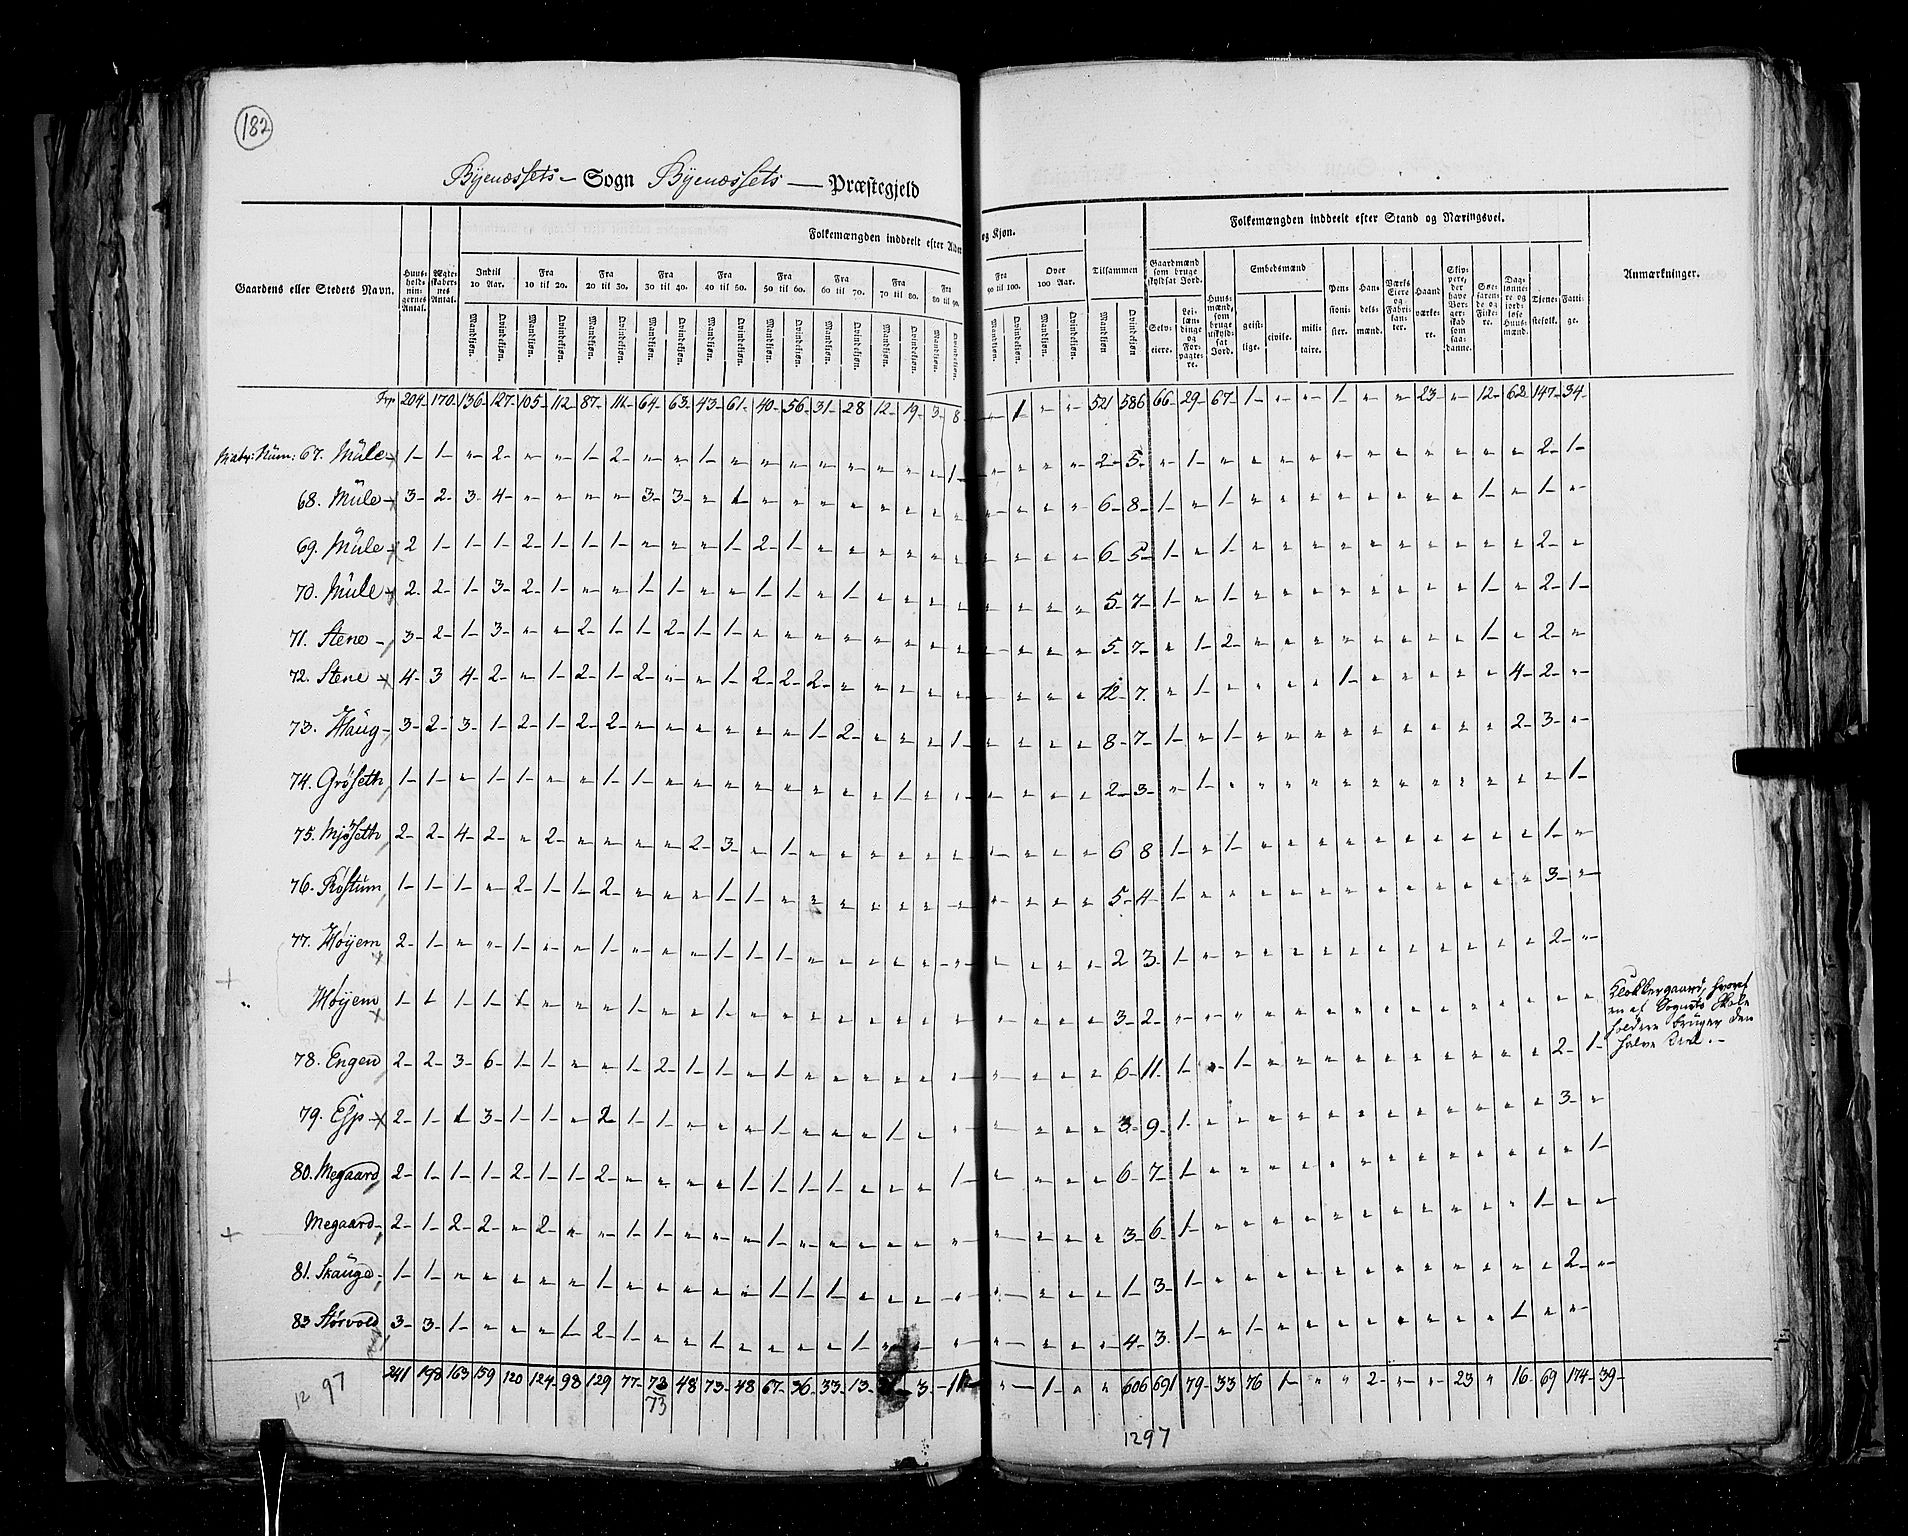 182
Byenæssets – Sogn Byenæssets — Præstegjeld
Gaardens eller Stedets Navn.
Huus-holdnin-gernes Antal.
Ægte-skaber-nes Antal.
Folkemængden inddeelt efter Alder og Kjøn.
Indtil 10 Aar. Fra 10 til 20. Fra 20 til 30. Fra 30 til 40. Fra 40 til 50. Fra 50 til 60. Fra 60 til 70. Fra 70 til 80. Fra 80 til 90. Fra 90 til 100. Over 100 Aar. Tilsammen
Mandkjøn. Qvindekjøn.
Folkemængden inddeelt efter Stand og Næringsvei.
Gaardmænd som bruge skyldsat Jord.
Selv-eiere. Lei-læn-dinge og For-pagte-re.
Huus-mænd, som bruge uskyld-sat Jord.
Embedsmænd
geist-lige. civile. mili-taire.
Pen-sioni-ster. Han-dels-mænd. Værks Eiere og Fabri-kan-ter. Haand værke-re. Skip-pere, der have Bor-ger-skab som saa-danne. Søe-faren-de og Fiske-re. Dag-lønne-re og jord-løse Huus-mænd. Tjene-stefolk. Fatti-ge.
Anmærkninger.
204 170 136 127 105 112 87 111 64 63 43 61 40 56 31 28 12 19 3 8 " 1 " " 521 586 66 29 67 1 " " 1 " " 23 " 12 62 147 34
67. Mule 1 1 " 2 " " 1 2 " " 1 " " " " " " " " 1 " " " " 2 5 " 1 " " " " " " " " " " " 2 1
68. Mule 3 2 3 4 " " " " 3 3 " 1 " " " " " " " " " " " " 6 8 1 " 1 " " " " " " " " 1 " 1 "
69. Mule 2 1 1 1 2 1 1 1 " " " 1 2 1 " " " " " " " " " " 6 5 1 " 1 " " " " " " " " " " 2 "
70. Mule 2 2 1 3 2 1 " " 1 1 " " 1 1 " 1 " " " " " " " " 5 7 1 " 1 " " " " " " " " 1 " 2 1
71. Stene 3 2 1 3 " " 2 1 1 2 1 1 " " " " " " " " " " " " 5 7 " 1 2 " " " " " " " " 1 " 2 "
72. Stene 4 3 4 2 " 1 2 1 2 " " 1 2 2 2 " " " " " " " " " 12 7 " 1 " " " " 1 " " " " " 4 2 "
73. Haug 3 2 3 1 2 1 2 2 " " " " " " 1 2 " " " 1 " " " " 8 7 1 " 1 " " " " " " " " " 2 3 "
74. Grøseth 1 1 " 1 1 " " 1 1 " " " " " " " 1 " " " " " " 2 3 " 1 " " " " " " " " " " " " 1
75. Mjøseth 2 2 4 2 " 2 " " " " 2 3 " 1 " " " " " " " " " " 6 8 1 " 1 " " " " " " " " " " 1 "
76. Røstum 1 1 1 " 2 1 1 2 " " " 1 1 " " " " " " " " " " 5 4 1 " " " " " " " " " " " " 3 "
77. Høyem 2 1 " " 1 " " 1 " " " 1 1 1 " " " " " " " " " " 2 3 1 " " " " " " " " " " " " 2 "
Høyem 1 1 1 1 1 " " " 1 " " 1 " " " " " " " " " " " " 3 2 " " " " " " " " " " " " " " "
Klokkergaard, hvoraf en af Sognets Skole
holdere bruger den
halve Deel.
78. Engen 2 2 3 6 1 1 " " 1 2 1 1 " 1 " " " " " " " " " " 6 11 1 " 1 " " " " " " " " " " 2 1
79. Esp 2 1 1 3 1 1 " 2 1 1 " " " 1 " " " 1 " " " " " " 3 9 1 " " " " " " " " " " " " 3 "
80. Megaard 2 1 1 1 2 1 1 2 " " " " 1 1 1 1 " " " 1 " " " " 6 7 1 " " " " " " " " " " " " " 1
Megaard 2 1 2 2 " 2 " " 1 1 " " " 1 " " " " " " " " " " 3 6 1 " " " " " " " " " " " 1 " "
81. Skauge 1 1 " " " " " 1 " " " " " 1 1 1 " " " " " " " " 1 3 1 " " " " " " " " " " " " 2 "
83 Størvold 3 3 1 " " " 1 2 1 " " 1 " " " " 1 " " " " " " " 4 3 1 " 1 " " " " " " " " " 1 " "
241 198 163 159 120 124 98 129 77 73 48 73 48 67 36 33 13 3 11 " 1 " " 606 691 79 33 76 1 " " 2 " " 23 " 16 69 174 39
73
12 97
1297